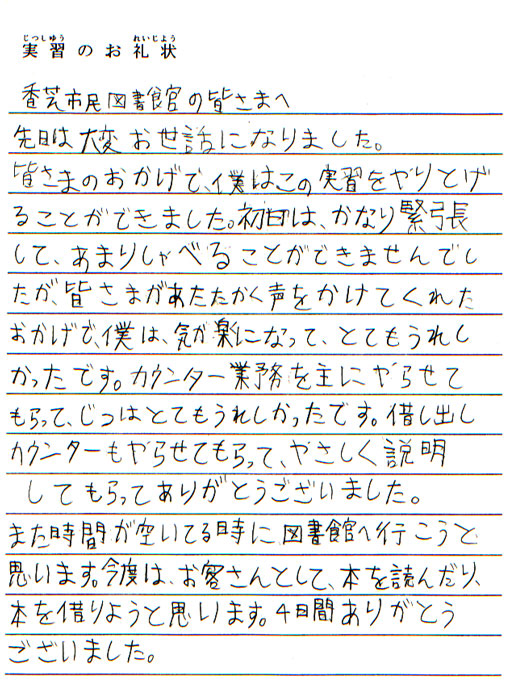 じっしゅう れいじょう
実習のお礼状
香芝市民図書館の皆さまへ
先日は大変お世話になりました。
皆さまのおかげで、僕はこの実習をやりとげ
ることができました。初日は、かなり緊張
して、あまりしゃべることができませんでし
たが、皆さまがあたたかく声をかけてくれた
おかげで、僕は、気が楽になって、とてもうれし
かったです。カウンター業務を主にやらせて
もらって、じつはとてもうれしかったです。借し出し
カウンターもやらせてもらって、やさしく説明
してもらってありがとうございました。
また時間が空いてる時に、図書館へ行こうと
思います。今度は、お客さんとして、本を読んだり、
本を借りようと思います。4日間ありがとう
ございました。